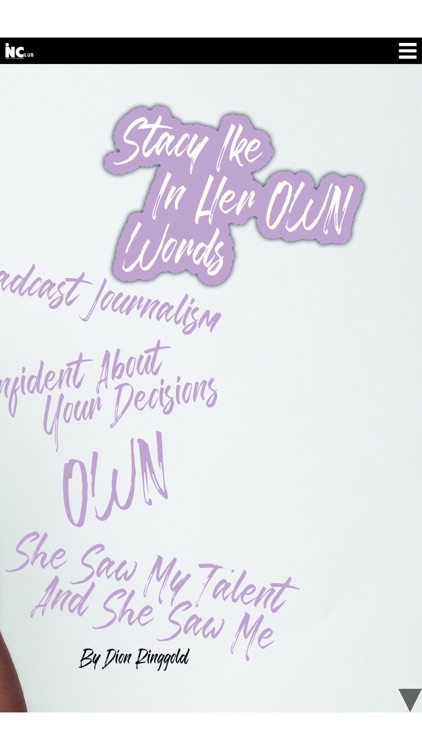 iNCLUB
Stacy Ike
In Her OWN
Words
adcast Journalism
nfident About
Your Decisions
OWN
She Saw My Talent
And She Saw Me
By Dion Ringgold